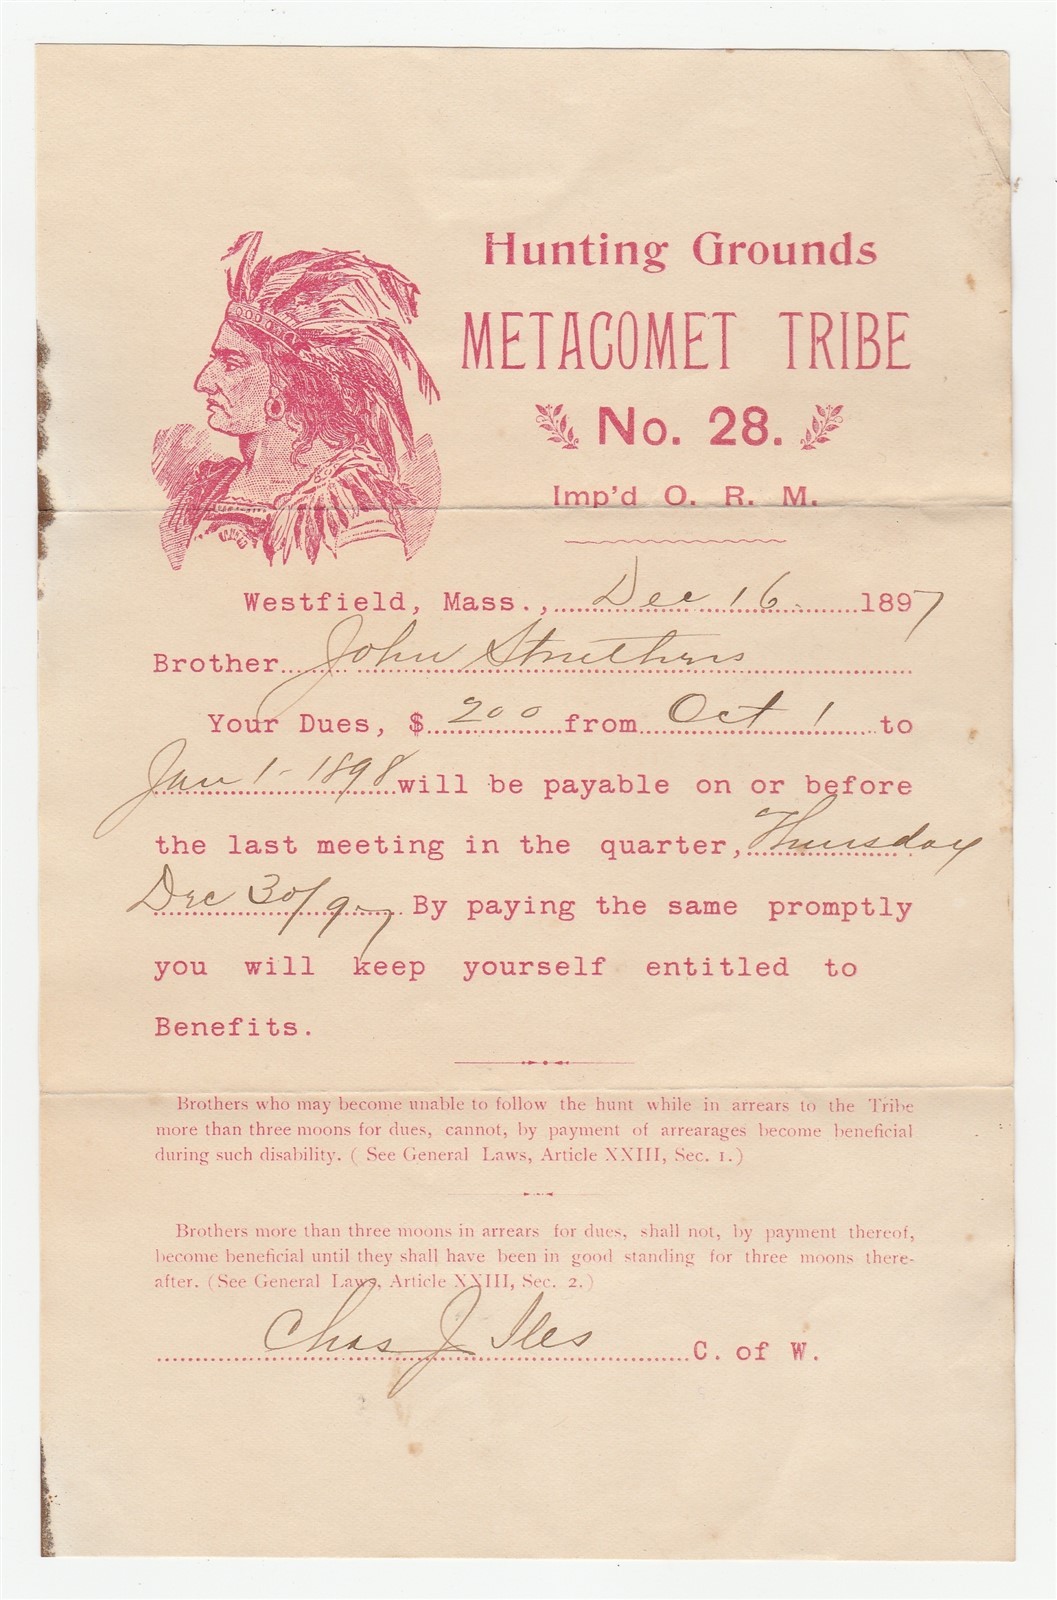 Hunting Grounds
METACOMET TRIBE
No. 28.
Imp'd O. R. M.
Westfield, Mass., Dec 16 1897
Brother John Struthers
Your Dues, $ 200 from Oct 1 to
Jan 1 - 1898 will be payable on or before
the last meeting in the quarter, Thursday
Dec 30/97 By paying the same promptly
you will keep yourself entitled to
Benefits.
Brothers who may become unable to follow the hunt while in arrears to the Tribe
more than three moons for dues, cannot, by payment of arrearages become beneficial
during such disability. ( See General Laws, Article XXIII, Sec. 1.)
Brothers more than three moons in arrears for dues, shall not, by payment thereof,
become beneficial until they shall have been in good standing for three moons there-
after. (See General Laws, Article XXIII, Sec. 2.)
Chas J Iles C. of W.